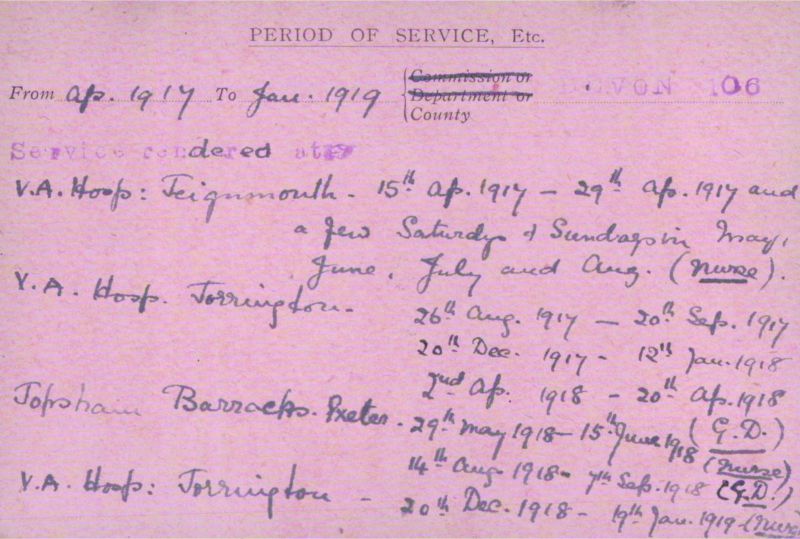 PERIOD OF SERVICE, Etc.
From Ap. 1917 To Jan. 1919 Commission or
Department or
County
DEVON 106
Service rendered at
V.A. Hosp: Teignmouth - 15th Ap. 1917 - 29th Ap. 1917 and
a few Saturdys & Sundays in May,
June, July and Aug. (nurse).
V.A. Hosp. Torrington -
26th Aug. 1917 - 20th Sep. 1917
20th Dec. 1917 - 12th Jan. 1918
2nd Ap. 1918 - 20th Ap. 1918
(G.D.)
Topsham Barracks. Exeter - 29th May 1918 - 15th June 1918
(nurse)
14th Aug 1918 - 7th Sep. 1918 (G.D.)
V.A. Hosp: Torrington - 20th Dec. 1918 - 19th Jan. 1919 - (nurse